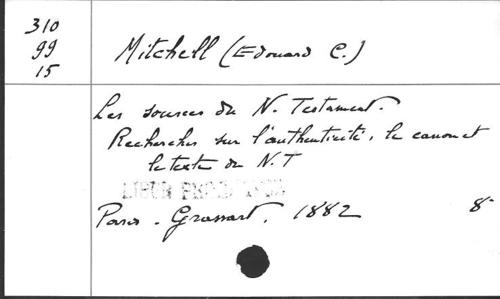 310
99
15
Mitchell (Edouard C.)
Les sources du N. Testament.
Recherches sur l'authenticité, le canon et
le texte du N.T
Paris. Grassart. 1882 8°